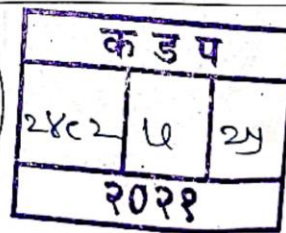 क ड प
२४८२ २५
२०२१